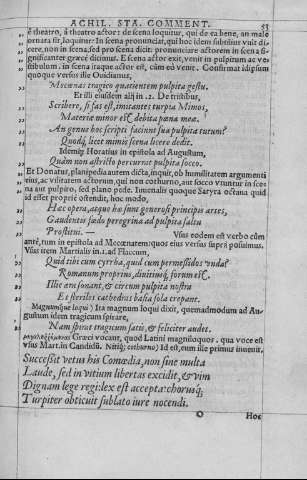 ACHIL. STA. COMMENT. 53
è theatro, â theatro actor: de scena loquitur, qui de ea bene, an male
ornata sit, loquitur: In scena pronunciat, qui hoc idem subtilius vult di-
cere, non in scena, sed pro scena dicit: pronunciare actorem in scena si-
gnificanter græcè dicimus. E scena actor exit, venit in pulpitum ac ve-
stibulum. in scena itaque actor est, cùm eò venit. Confirmat id ipsum
quoque versus ille Ouidianus,
Mecœnas tragico quatientem pulpita gestu.
Et illi eiusdem alij in .2. De tristibus,
Scribere, si fas est, imitantes turpia Mimos,
Materiæ minor est debita pœna meæ.
An genus hoc scripti faciunt sua pulpita tutum?
Quodq́; licet mimis scena licere dedit.
Idemq́; Horatius in epistola ad Augustum,
Quàm non astricto percurrat pulpita socco.
Et Donatus, planipedia autem dicta, inquit, ob humilitatem argumenti
eius, ac vilitatem actorum, qui non cothurno, aut socco vtuntur in sce-
na aut pulpito, sed plano pede. Iuuenalis quoque Satyra octaua quid
id esset propriè ostendit, hoc modo,
Hac opera, atque hæ sunt generosi principis artes,
Gaudentis fœdo peregrina ad pulpita saltu
Prostitui. — Vsus eodem est verbo cùm
antè, tum in epistola ad Mecœnatem: quos eius versus suprà posuimus.
Vsus item Martialis in .1. ad Flaccum,
Quid tibi cum cyrrha, quid cum permesside vnda?
Romanum propriùs, diuitiusq́; forum est.
Illic æra sonant, & circum pulpita nostra
Et steriles cathedras basia sola crepant.
Magnumque loqui) Ita magnum loqui dixit, quemadmodum ad Au-
gustum idem tragicum spirare,
Nam spirat tragicum satis, & feliciter audet.
Græci vocant, quod Latini magniloquos. qua voce est
vsus Mart. in Candidū. Nitiq́; cothurno) Id est, eum ille primus inuenit.
Successit vetus his Comœdia, non sine multa
Laude, sed in vitium libertas excidit, & vim
Dignam lege regi: lex est accepta: chorusq́;
Turpiter obticuit sublato iure nocendi.
O Hoc